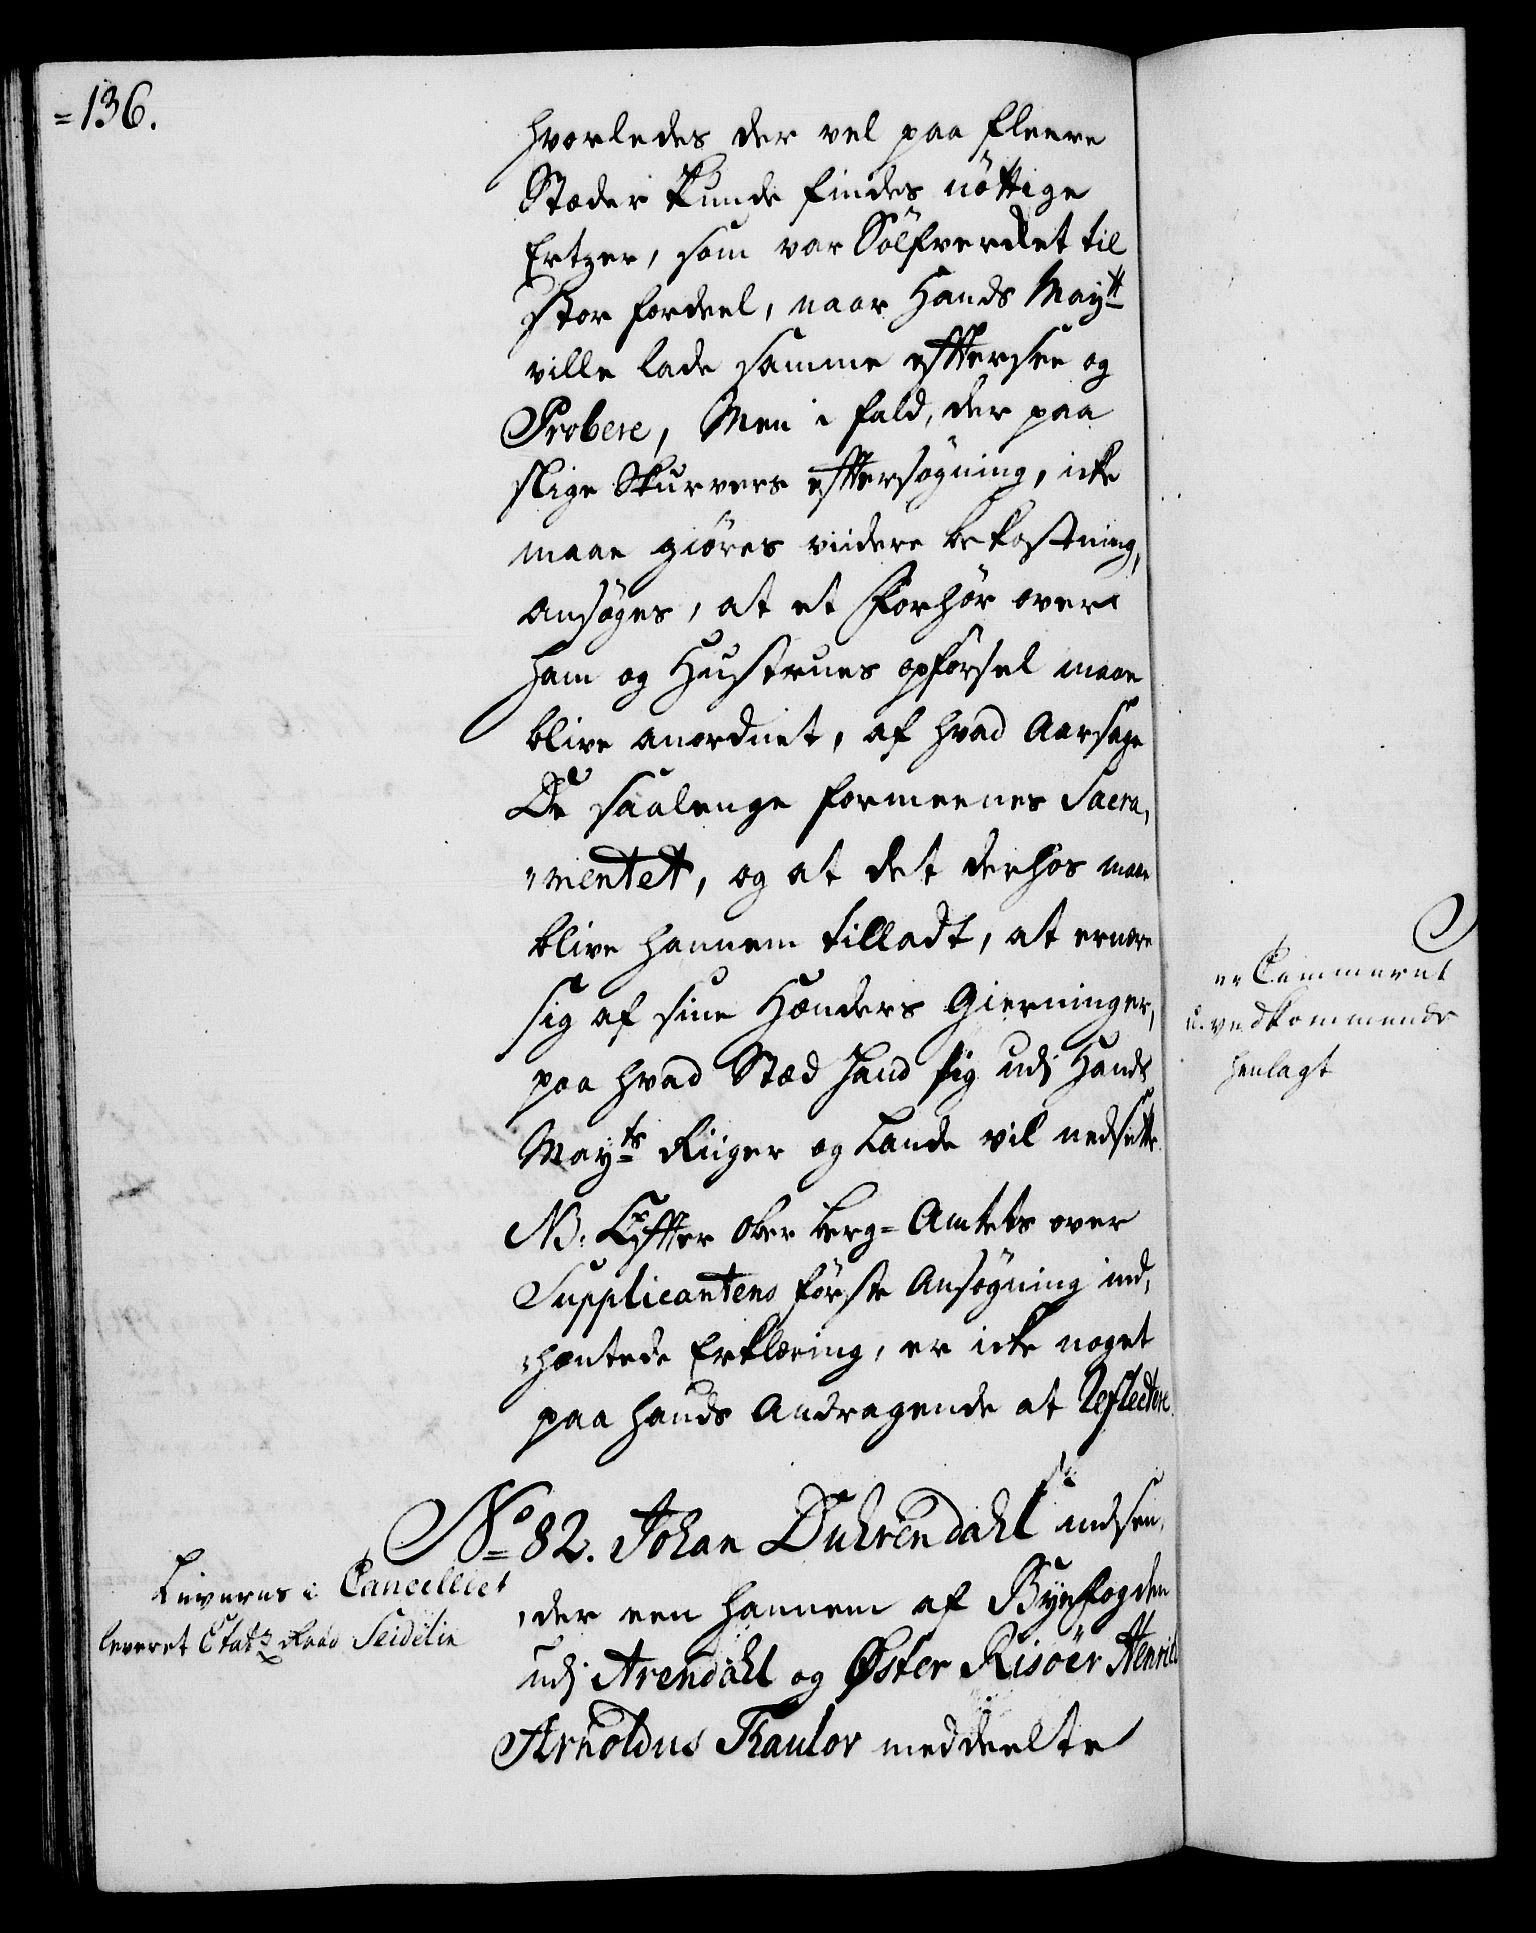 =136.
hvorledes der vel paa fleere
Stæder kunde findes nöttige
Ertzer, som var Sölfverket til
stor fordeel, naar Hands Maytt
ville lade samme efftersee og
Probere, Men i fald, der paa
slige Skurvers efftersögning, icke
maae giöres viidere bekostning,
ansöges, at et Forhör over
ham og Hustrues opförsel maae
blive anordnet, af hvad Aarsage
De saalenge formeenes Sacra,
"mentet, og at det derhos maae
blive hannem tilladt, at ernære
sig af sine Hænders Gierninger,
paa hvad Stæd hand sig udj Hands
Mayts Riiger og Lande vil nedsætte.
NB: Effter Ober Berg=Amtets over
Supplicantens förste Ansögning ind,
"hæntede Erklæring, er icke noget
paa hands Andragende at Reflectere.
No 82. Johan Duhrendahl indsen,
"der een hannem af Byefogden
udj Arendahl og Øster Risöer Henrich
Arnoldus Thaulov meddeelte
Leveres i Cancelliet
leveret Etatz Raad Seidelin
er Cammeret
u.vedkommende
henlagt